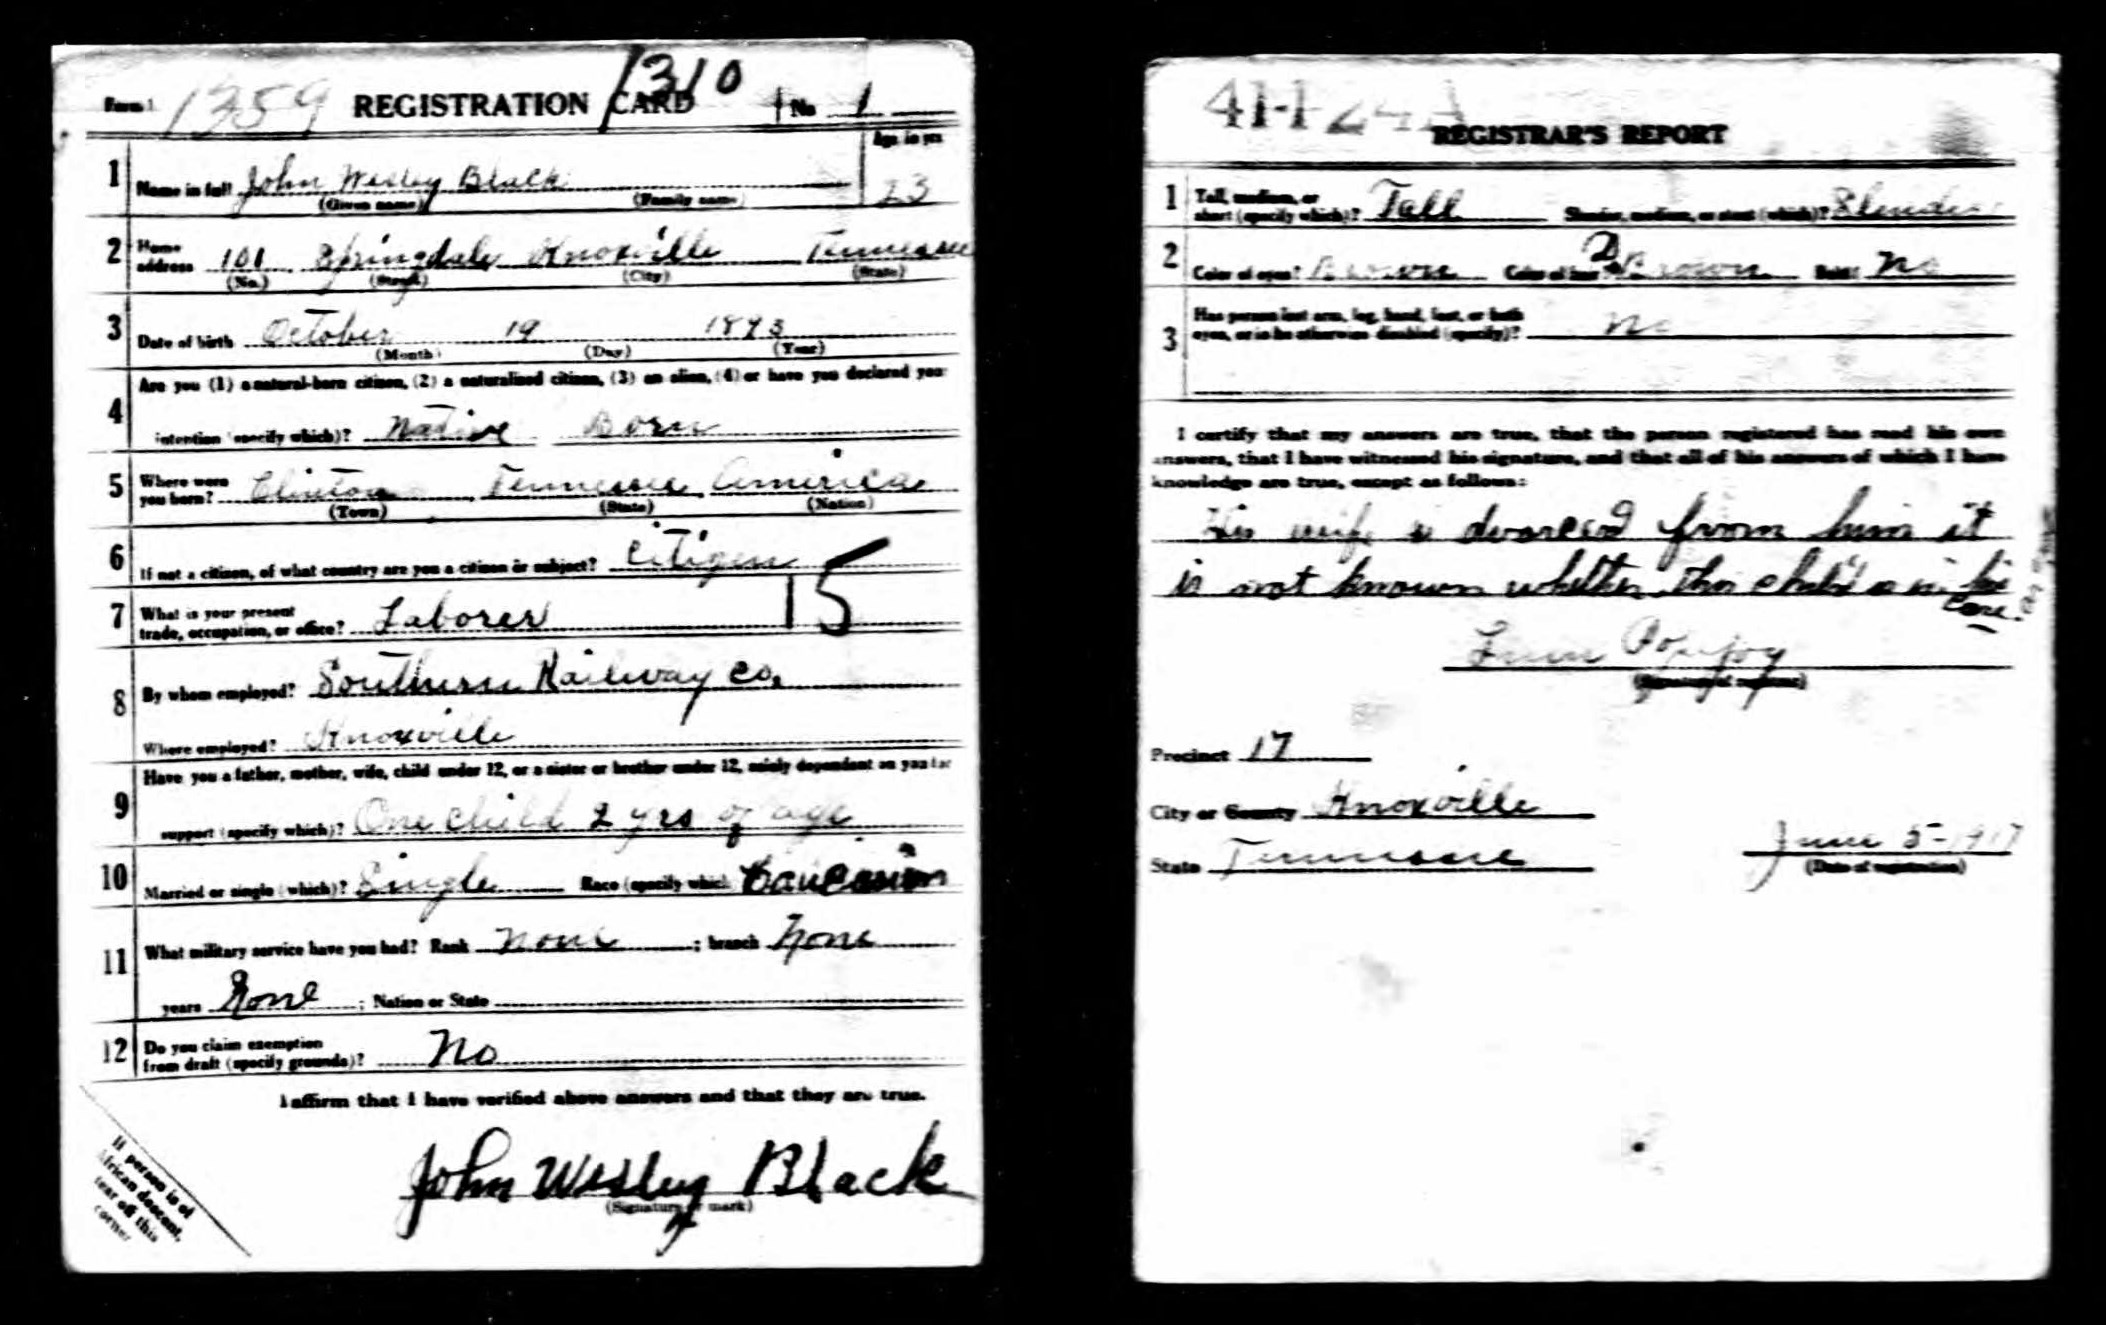 Form 1 1359 REGISTRATION CARD 1310 No 1
Age in yrs
1 Name in full John Wesley Black 23
(Given name) (Family name)
2 Home address 101 Springdale Knoxville Tennessee
(No.) (Street) (City) (State)
3 Date of birth October 19 1893
(Month) (Day) (Year)
4 Are you (1) a natural-born citizen, (2) a naturalized citizen, (3) an alien, (4) or have you declared your
intention (specify which)? Native Born
5 Where were you born? Clinton Tennessee America
(Town) (State) (Nation)
6 If not a citizen, of what country are you a citizen or subject? Citizen
7 What is your present trade, occupation, or office? Laborer 15
8 By whom employed? Southern Railway Co.
Where employed? Knoxville
9 Have you a father, mother, wife, child under 12, or a sister or brother under 12, solely dependent on you for
support (specify which)? One child 2 yrs of age
10 Married or single (which)? Single Race (specify which) Caucasion
11 What military service have you had? Rank none ; branch none
years None ; Nation or State
12 Do you claim exemption from draft (specify grounds)? No
I affirm that I have verified above answers and that they are true.
John Wesley Black
(Signature or mark)
If person is of
African descent,
tear off this
corner
41-1-24 A
REGISTRAR'S REPORT
1 Tall, medium, or short (specify which)? Tall Slender, medium, or stout (which)? Slender
2 Color of eyes? Brown Color of hair? D. Brown Bald? No
3 Has person lost arm, leg, hand, foot, or both eyes, or is he otherwise disabled (specify)? no
I certify that my answers are true, that the person registered has read his own
answers, that I have witnessed his signature, and that all of his answers of which I have
knowledge are true, except as follows:
His wife is divorced from him it
is not known whether the child is in his
care
Popejoy
(Signature of registrar)
Precinct 17
City or County Knoxville
State Tennessee June 5-1917
(Date of registration)